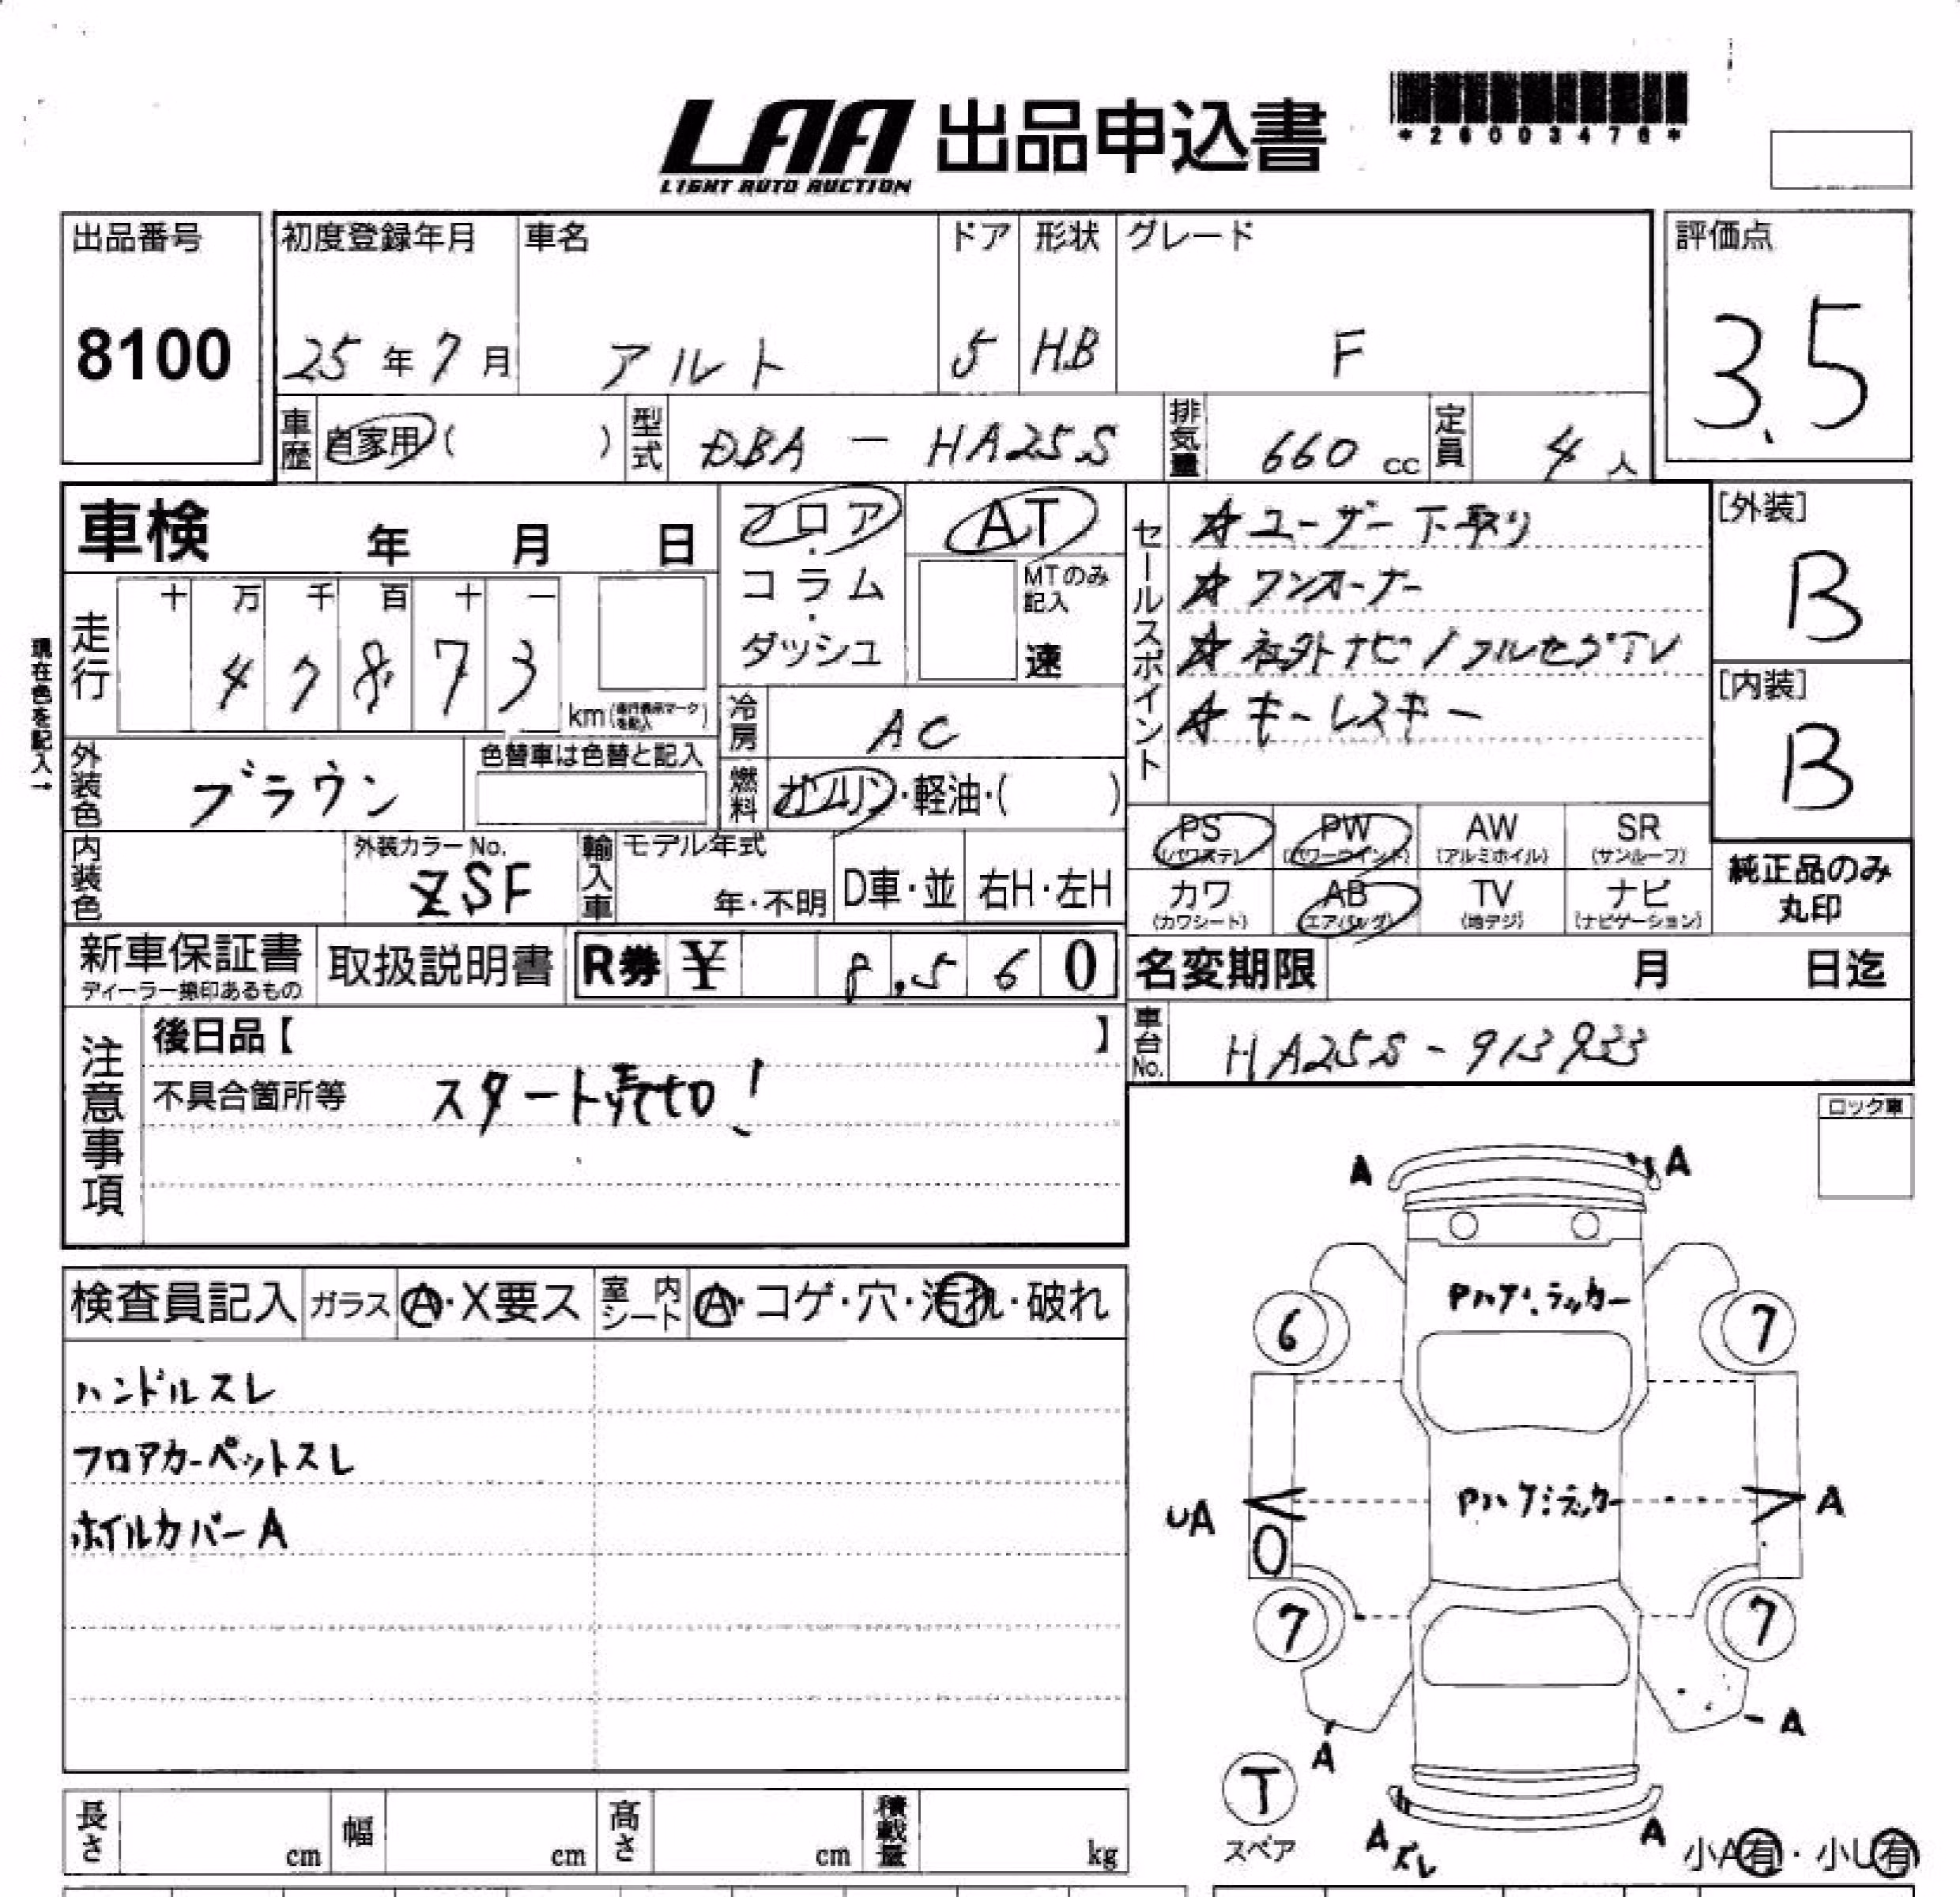 LAA 出品申込書
LIGHT AUTO AUCTION
*26003476*
出品番号
8100
初度登録年月
25年7月
車名
アルト
ドア
5
形状
H.B
グレード
F
評価点
3.5
車歴 自家用( )
型式 DBA - HA25S
排気量 660 cc
定員 4人
車検 年 月 日
フロア・コラム・ダッシュ
AT
MTのみ記入
速
セールスポイント
☆ユーザー下取り
☆ワンオーナー
☆社外ナビ/フルセグTV
☆キーレスキー
[外装]
B
[内装]
B
現在色を記入→
走行
十 万 千 百 十 一
4 7 8 7 3
km(走行表示マークを記入)
冷房 AC
外装色 ブラウン
色替車は色替と記入
燃料 ガソリン・軽油・( )
PS (パワステ)
PW (パワーウインド)
AW (アルミホイル)
SR (サンルーフ)
カワ (カワシート)
AB (エアバッグ)
TV (地デジ)
ナビ (ナビゲーション)
純正品のみ
丸印
内装色
外装カラーNo.
ZSF
輸入車
モデル年式
年・不明
D車・並
右H・左H
新車保証書
ディーラー捺印あるもの
取扱説明書
R券 ¥ 8,560
名変期限 月 日迄
車台No. HA25S-913933
注意事項
後日品【 】
不具合箇所等 スタート売切!
ロック車
検査員記入 ガラス A・X要ス 室内シート A・コゲ・穴・汚れ・破れ
ハンドルスレ
フロアカーペットスレ
ホイルカバーA
A A
Pハゲ:ラッカー
6 7
Pハゲ:ラッカー
UA A
0
7 7
A A
T
スペア
A ズレ A
小A有・小U有
長さ cm 幅 cm 高さ cm 積載量 kg